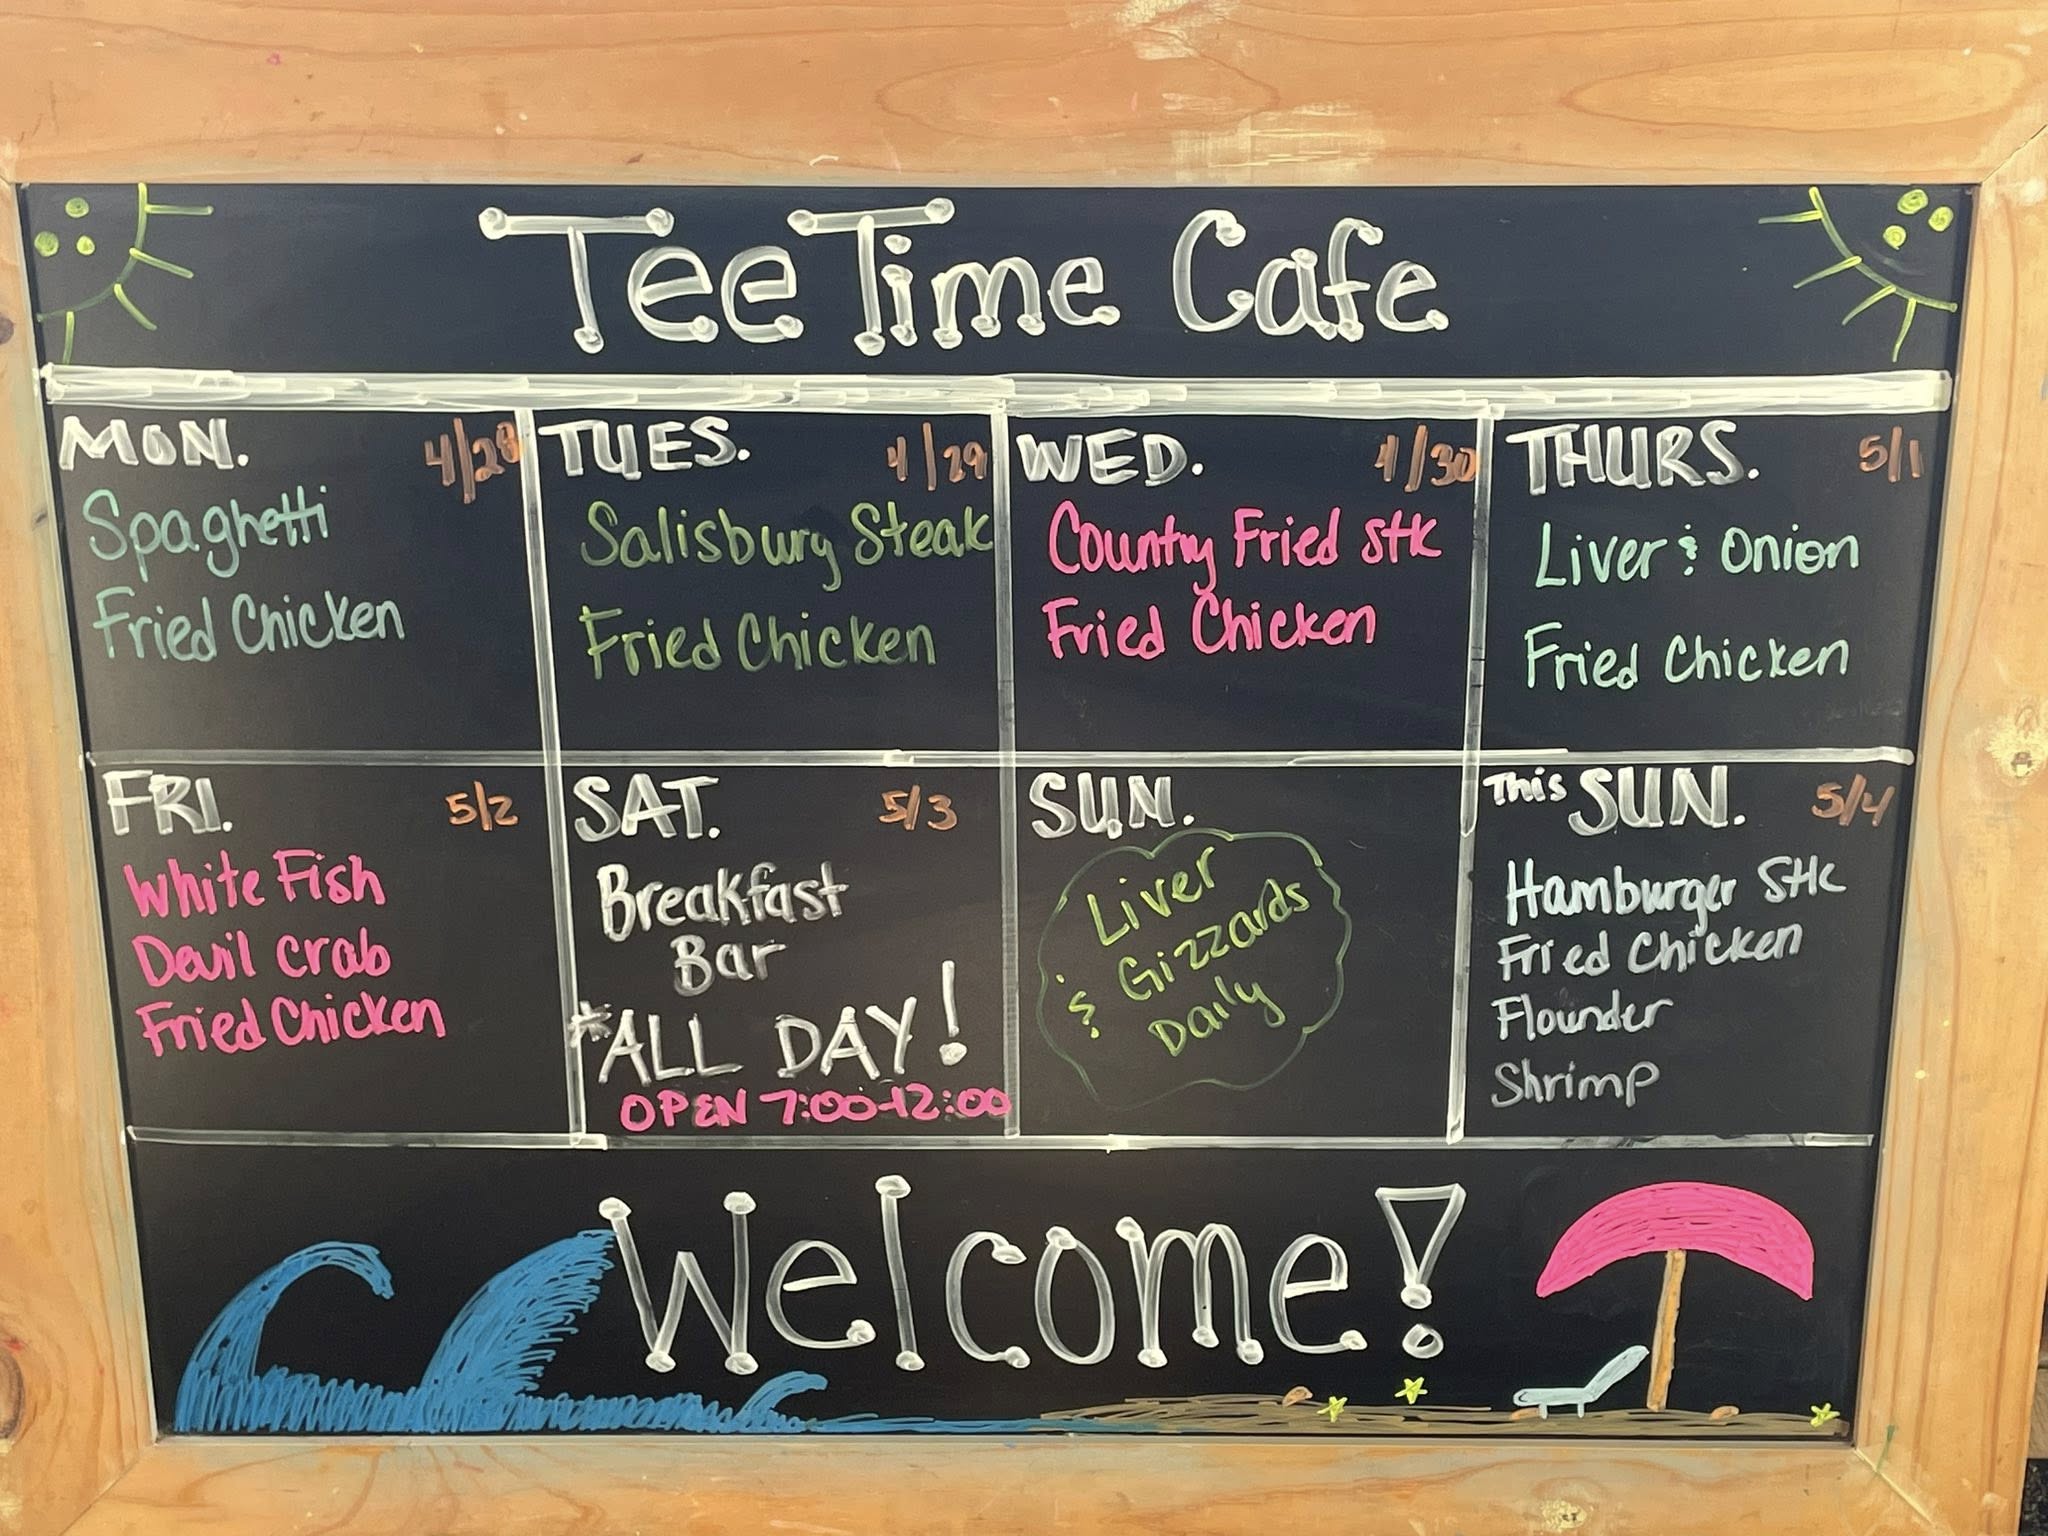 TeeTime Cafe
MON. 4/28
Spaghetti
Fried Chicken
TUES. 4/29
Salisbury Steak
Fried Chicken
WED. 4/30
Country Fried Stk
Fried Chicken
THURS. 5/1
Liver & Onion
Fried Chicken
FRI. 5/2
White Fish
Devil Crab
Fried Chicken
SAT. 5/3
Breakfast
Bar
*ALL DAY!
OPEN 7:00-12:00
SUN.
Liver
& Gizzards
Daily
This SUN. 5/4
Hamburger Stk
Fried Chicken
Flounder
Shrimp
Welcome!